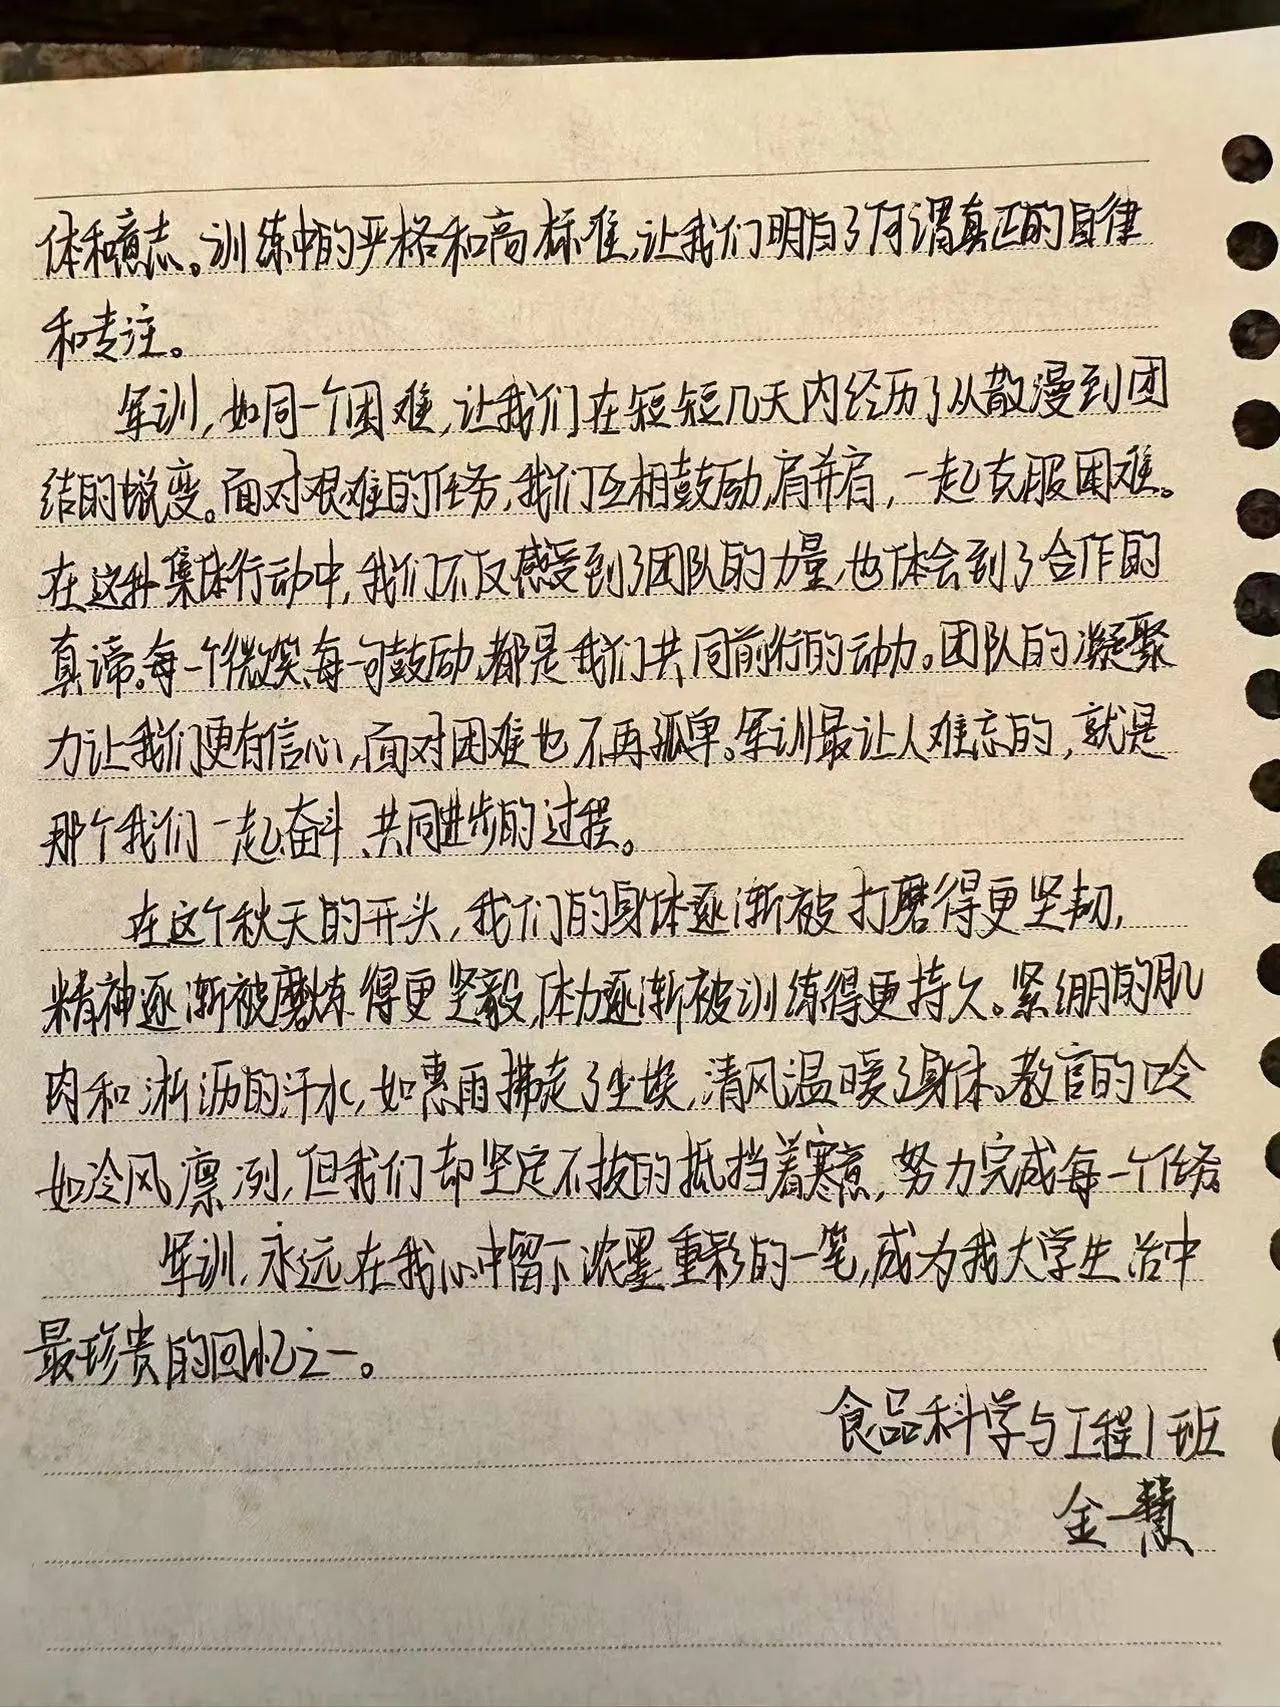 体和意志。训练中的严格和高标准,让我们明白了何谓真正的自律
和专注。
军训,如同一个困难,让我们在短短几天内经历了从散漫到团
结的蜕变。面对艰难的任务,我们互相鼓励,肩并肩,一起克服困难。
在这种集体行动中,我们不仅感受到了团队的力量,也体会到了合作的
真谛。每一个微笑、每一句鼓励,都是我们共同前行的动力。团队的凝聚
力让我们更有信心,面对困难也不再孤单。军训最让人难忘的,就是
那个我们一起奋斗、共同进步的过程。
在这个秋天的开头,我们的身体逐渐被打磨得更坚韧,
精神逐渐被磨炼得更坚毅,体力逐渐被训练得更持久。紧绷的肌
肉和淅沥的汗水,如惠雨拂走了尘埃,清风温暖了身体。教官的口令
如冷风凛冽,但我们却坚定不拔的抵挡着寒意,努力完成每一个任务。
军训,永远在我心中留下浓墨重彩的一笔,成为我大学生活中
最珍贵的回忆之一。
食品科学与工程1班
金一慧